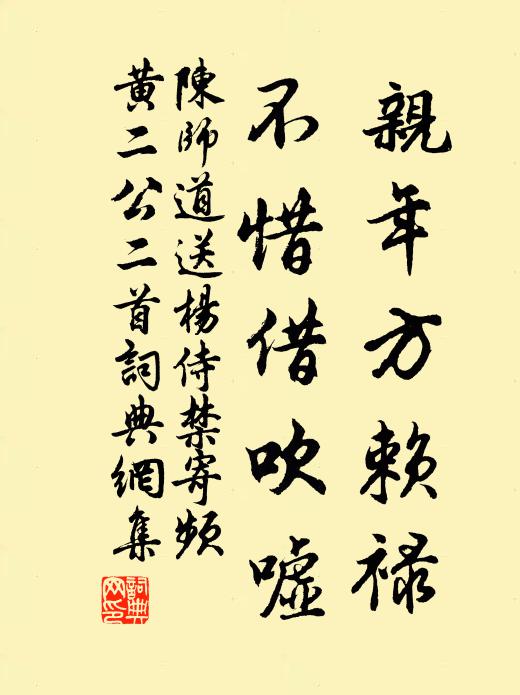 親年方賴祿
不惜借吹噓
陳師道送楊侍禁寄頻
黃二公二首詞典網集
詞典